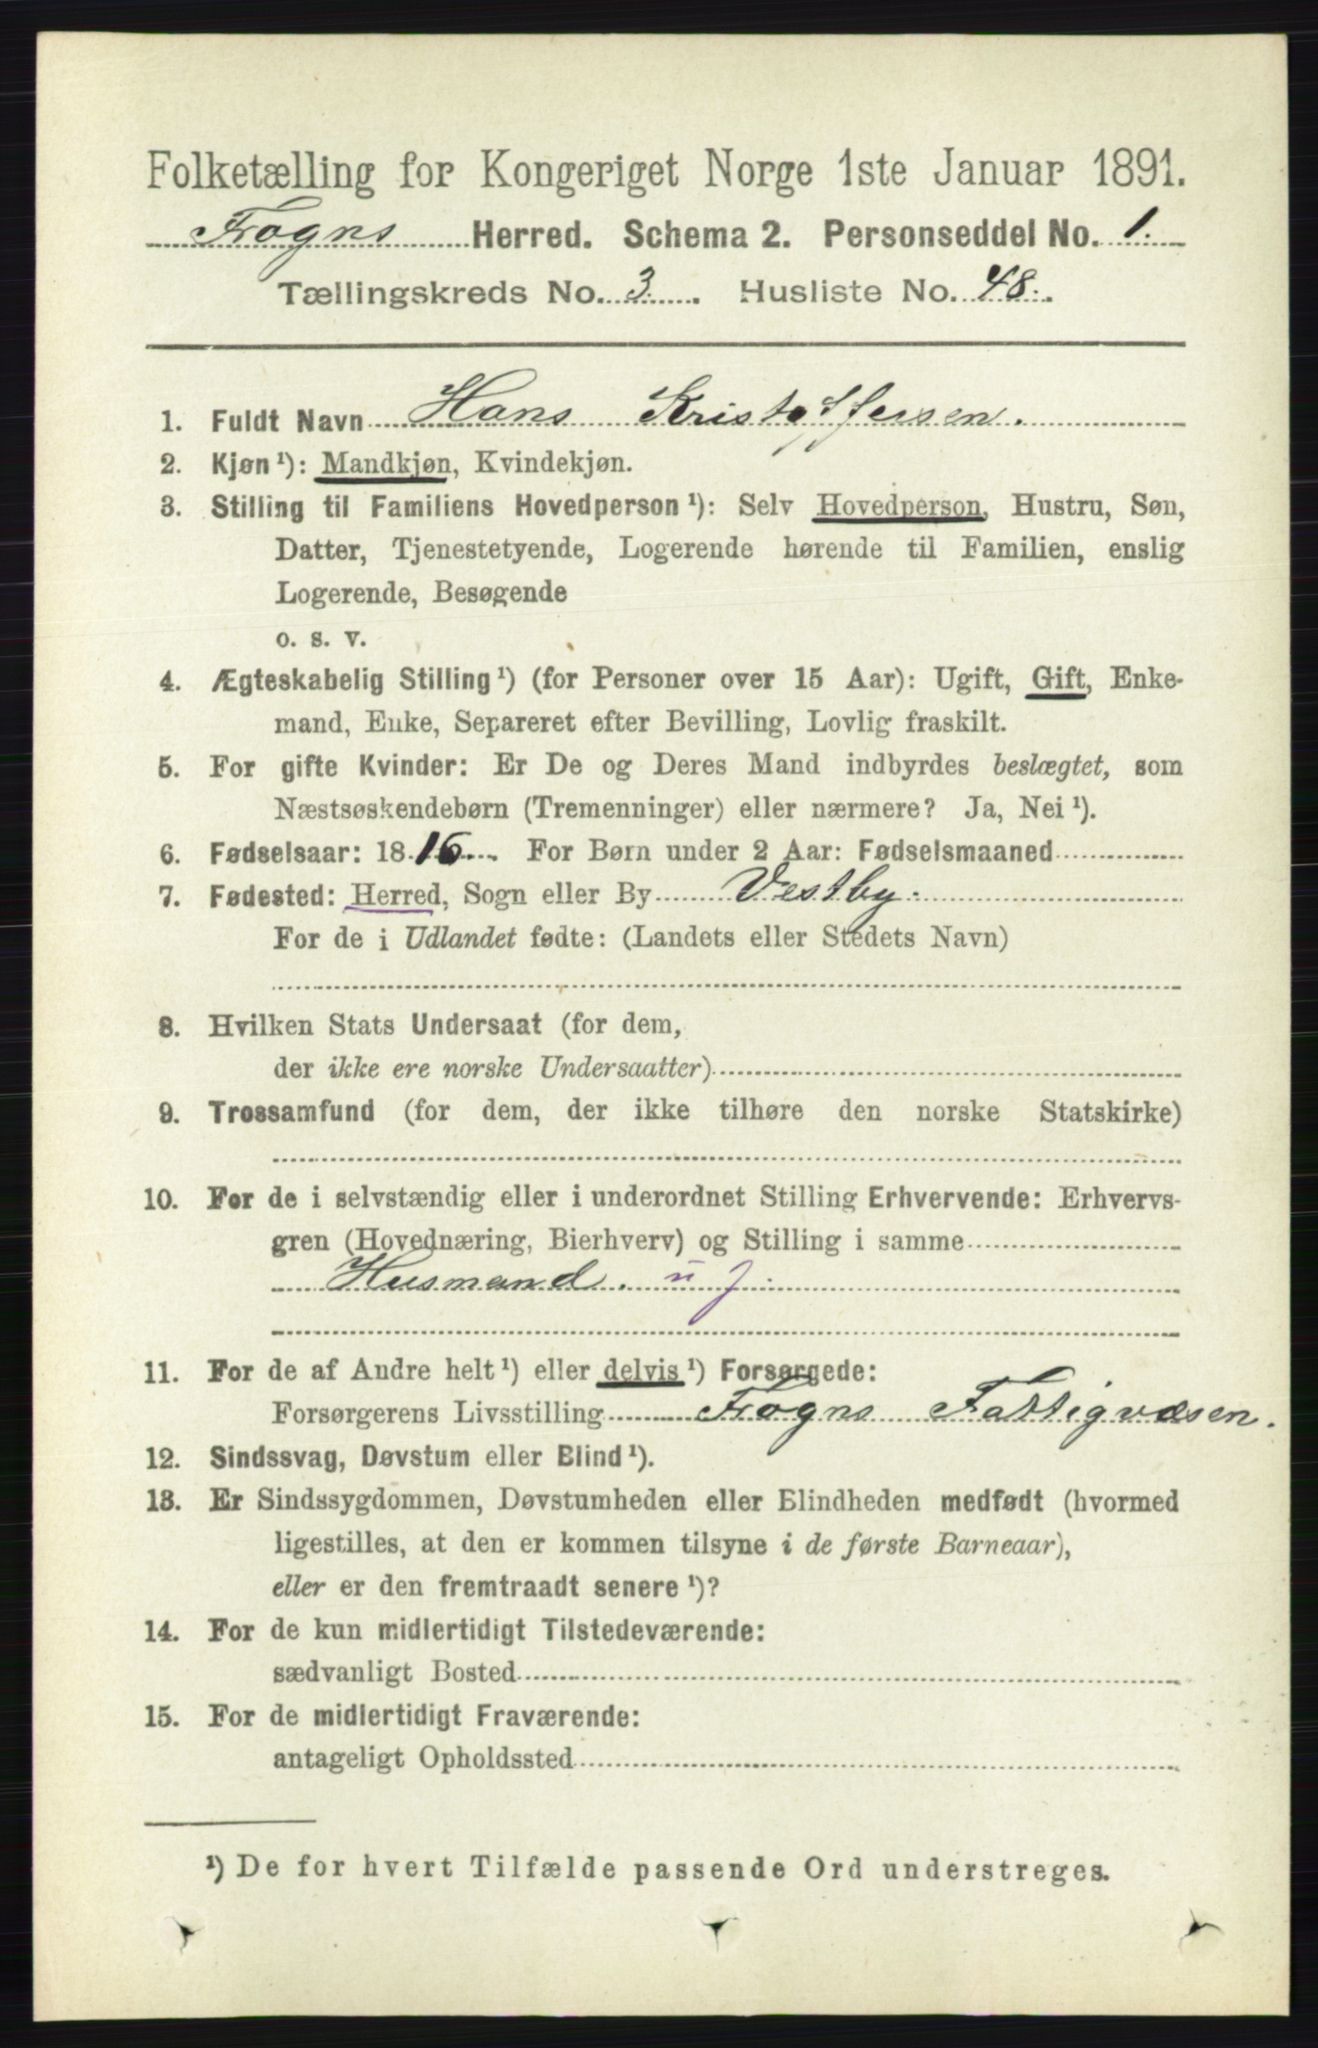 Folketælling for Kongeriget Norge 1ste Januar 1891.
Frogns Herred. Schema 2. Personseddel No. 1.
Tællingskreds No. 3. Husliste No. 48.
1. Fuldt Navn Hans Kristoffersen.
2. Kjøn ¹): Mandkjøn, Kvindekjøn.
3. Stilling til Familiens Hovedperson ¹): Selv Hovedperson, Hustru, Søn,
Datter, Tjenestetyende, Logerende hørende til Familien, enslig
Logerende, Besøgende
o. s. v.
4. Ægteskabelig Stilling ¹) (for Personer over 15 Aar): Ugift, Gift, Enke-
mand, Enke, Separeret efter Bevilling, Lovlig fraskilt.
5. For gifte Kvinder: Er De og Deres Mand indbyrdes beslægtet, som
Næstsøskendebørn (Tremenninger) eller nærmere? Ja, Nei ¹).
6. Fødselsaar: 1816. For Børn under 2 Aar: Fødselsmaaned
7. Fødested: Herred, Sogn eller By Vestby.
For de i Udlandet fødte: (Landets eller Stedets Navn)
8. Hvilken Stats Undersaat (for dem,
der ikke ere norske Undersaatter)
9. Trossamfund (for dem, der ikke tilhøre den norske Statskirke)
10. For de i selvstændig eller i underordnet Stilling Erhvervende: Erhvervs-
gren (Hovednæring, Bierhverv) og Stilling i samme
Husmand. u j.
11. For de af Andre helt ¹) eller delvis ¹) Forsørgede:
Forsørgerens Livsstilling Frogns Fattigvæsen.
12. Sindssvag, Døvstum eller Blind ¹).
13. Er Sindssygdommen, Døvstumheden eller Blindheden medfødt (hvormed
ligestilles, at den er kommen tilsyne i de første Barneaar),
eller er den fremtraadt senere ¹)?
14. For de kun midlertidigt Tilstedeværende:
sædvanligt Bosted
15. For de midlertidigt Fraværende:
antageligt Opholdssted
¹) De for hvert Tilfælde passende Ord understreges.